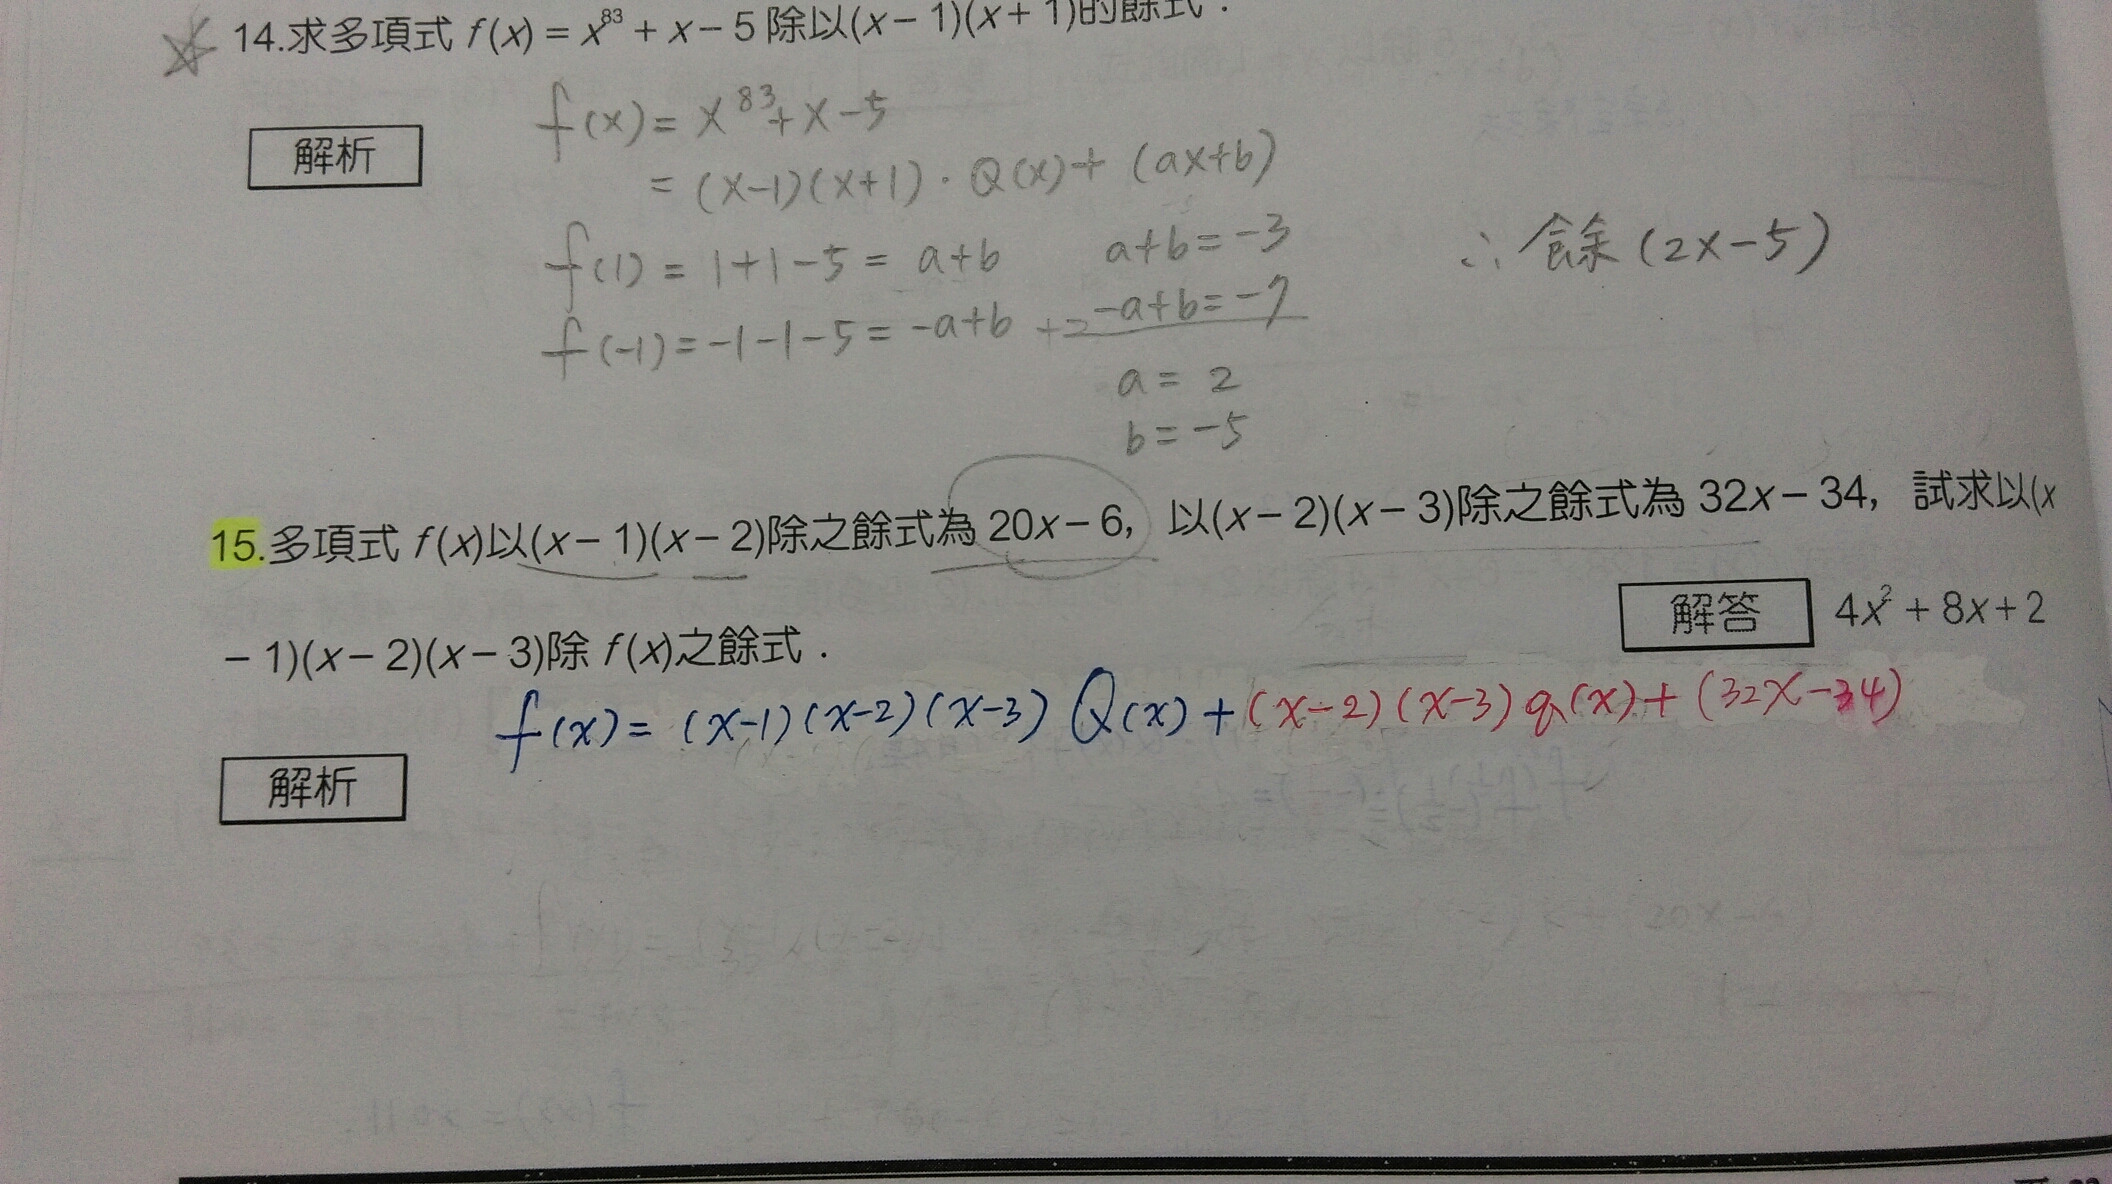 14.求多項式 f(x) = x⁸³ + x − 5 除以(x − 1)(x + 1)的餘式.
解析
f(x) = x⁸³ + x − 5
= (x−1)(x+1)·Q(x) + (ax+b)
f(1) = 1+1−5 = a+b a+b = −3 ∴餘(2x−5)
f(−1) = −1−1−5 = −a+b +) −a+b = −7
a = 2
b = −5
15.多項式 f(x)以(x − 1)(x − 2)除之餘式為 20x − 6, 以(x − 2)(x − 3)除之餘式為 32x − 34, 試求以(x
− 1)(x − 2)(x − 3)除 f(x)之餘式.
解答 4x² + 8x + 2
f(x) = (x−1)(x−2)(x−3) Q(x) + (x−2)(x−3) q(x) + (32x−34)
解析